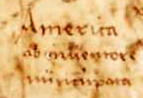 America
ab inuentore
nuncupata